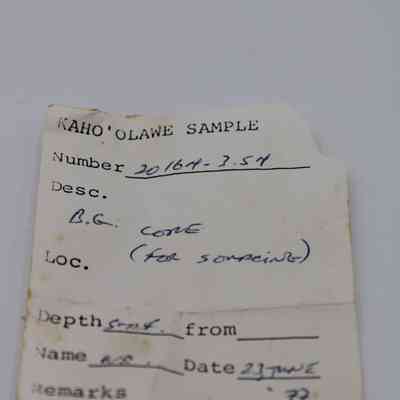 KAHO'OLAWE SAMPLE
Number 20164-3.54
Desc.
B.G. CORE
(FOR SOURCING)
Loc.
Depth surf. from
Name Date 23 JUNE
Remarks '72